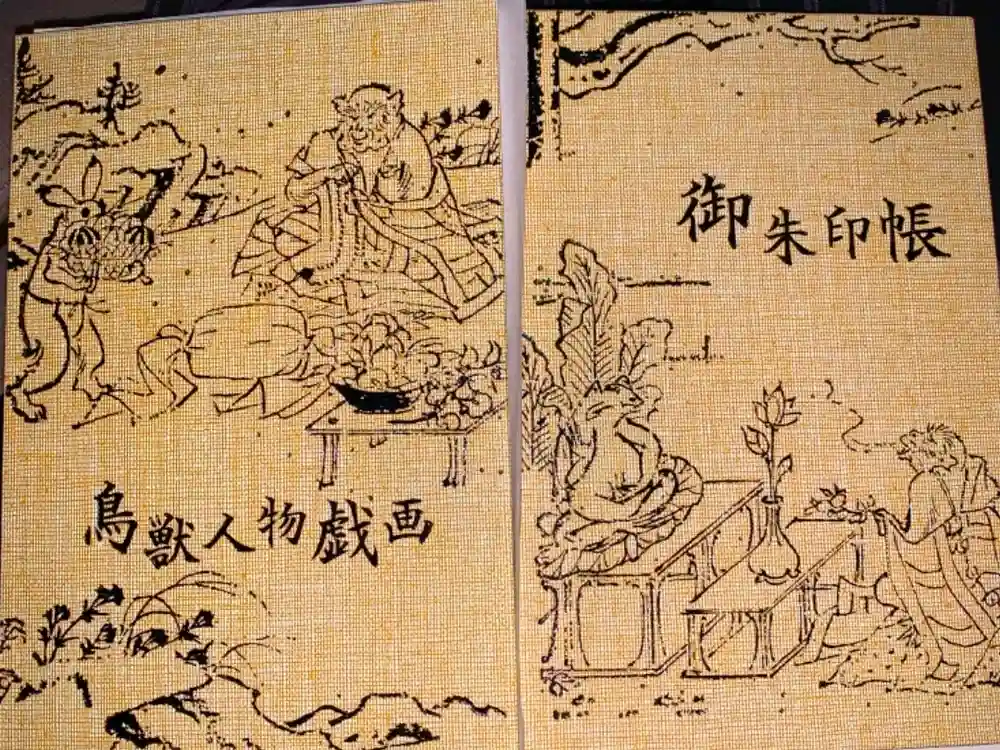 鳥獣人物戯画
御朱印帳